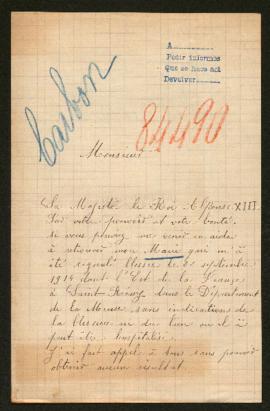 A
Pedir informes
Que se hace acl
Devolver
Carbon
84490
Monsieur
Sa Majesté le Roi Alfonse XIII
Par votre pouvoir et votre bonté
si vous pouvez me venir en aide
à retrouver mon Mari qui a
été signalé blessé le 20 septembre
1914 dans l'Est de la France
à Saint Remy dans le Département
de la Meuse sans indications de
la blessure ni du lieu ou il a
peut être hospitalisé.
J'ai fait appel à tous sans pouvoir
obtenir aucun résultat.